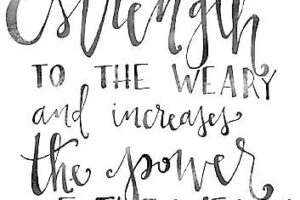 strength
TO THE WEARY
and increases
the power